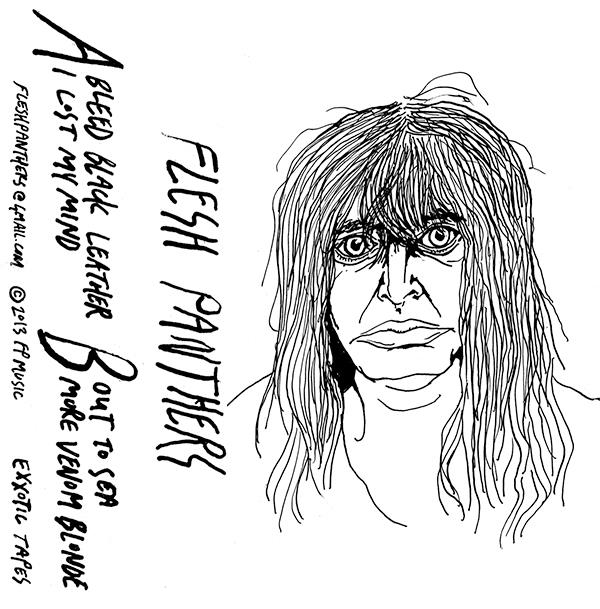 FLESH PANTHERS
A
BLEED BLACK LEATHER
I LOST MY MIND
B
OUT TO SEA
MORE VENOM BLONDE
FLESHPANTHERS@GMAIL.COM © 2013 FP MUSIC EXXOTIC TAPES